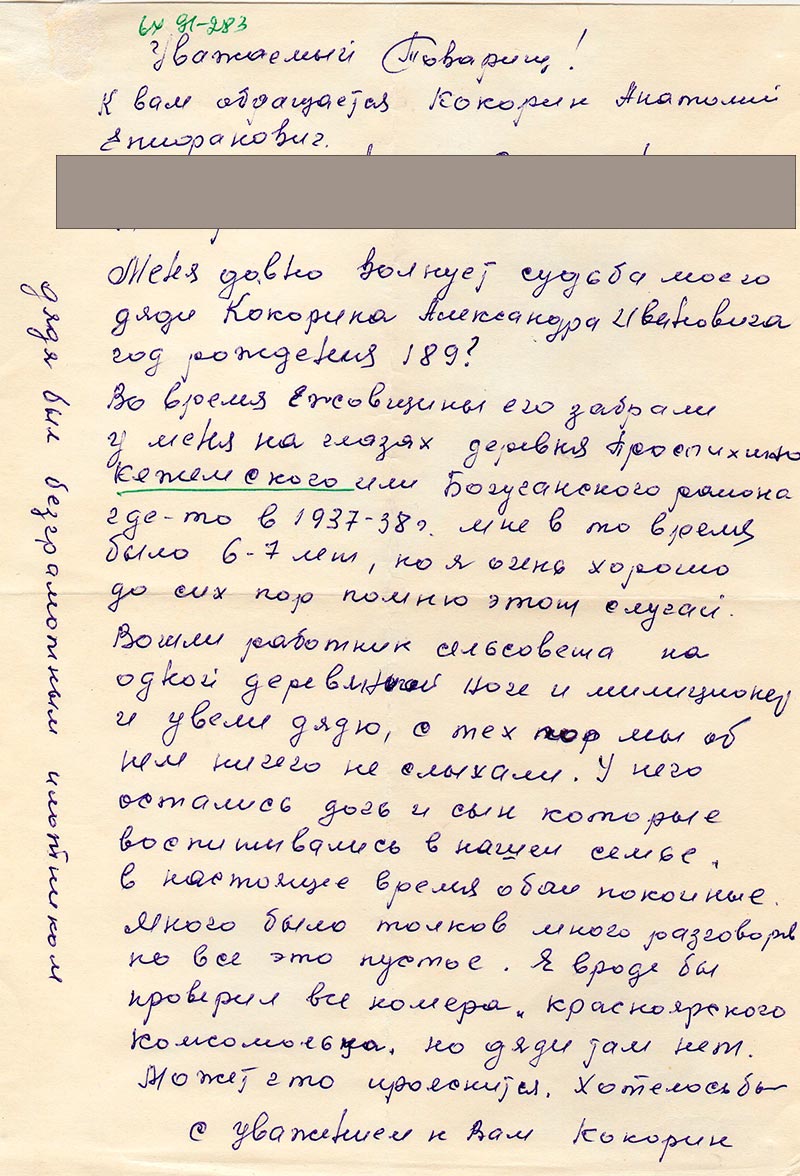 вх 91-283
Уважаемый Товарищ!
К вам обращается Кокорин Анатолий
Епифанович.
Меня давно волнует судьба моего
дяди Кокорина Александра Ивановича
год рождения 189?
Во время Ежовщины его забрали
у меня на глазах деревня Проспихино
Кежемского или Богучанского района
где-то в 1937-38г. мне в то время
было 6-7 лет, но я очень хорошо
до сих пор помню этот случай.
Вошли работник сельсовета на
одной деревянной ноге и милиционер
и увели дядю, с тех пор мы об
нем ничего не слыхали. У него
остались дочь и сын которые
воспитывались в нашей семье,
в настоящее время обои покойные.
Много было толков много разговоров
но все это пустое. Я вроде бы
проверил все номера „Красноярского
комсомольца„ но дяди там нет.
Может что прояснится. Хотелось бы
с уважением к Вам Кокорин
дядя был безграмотным плотником